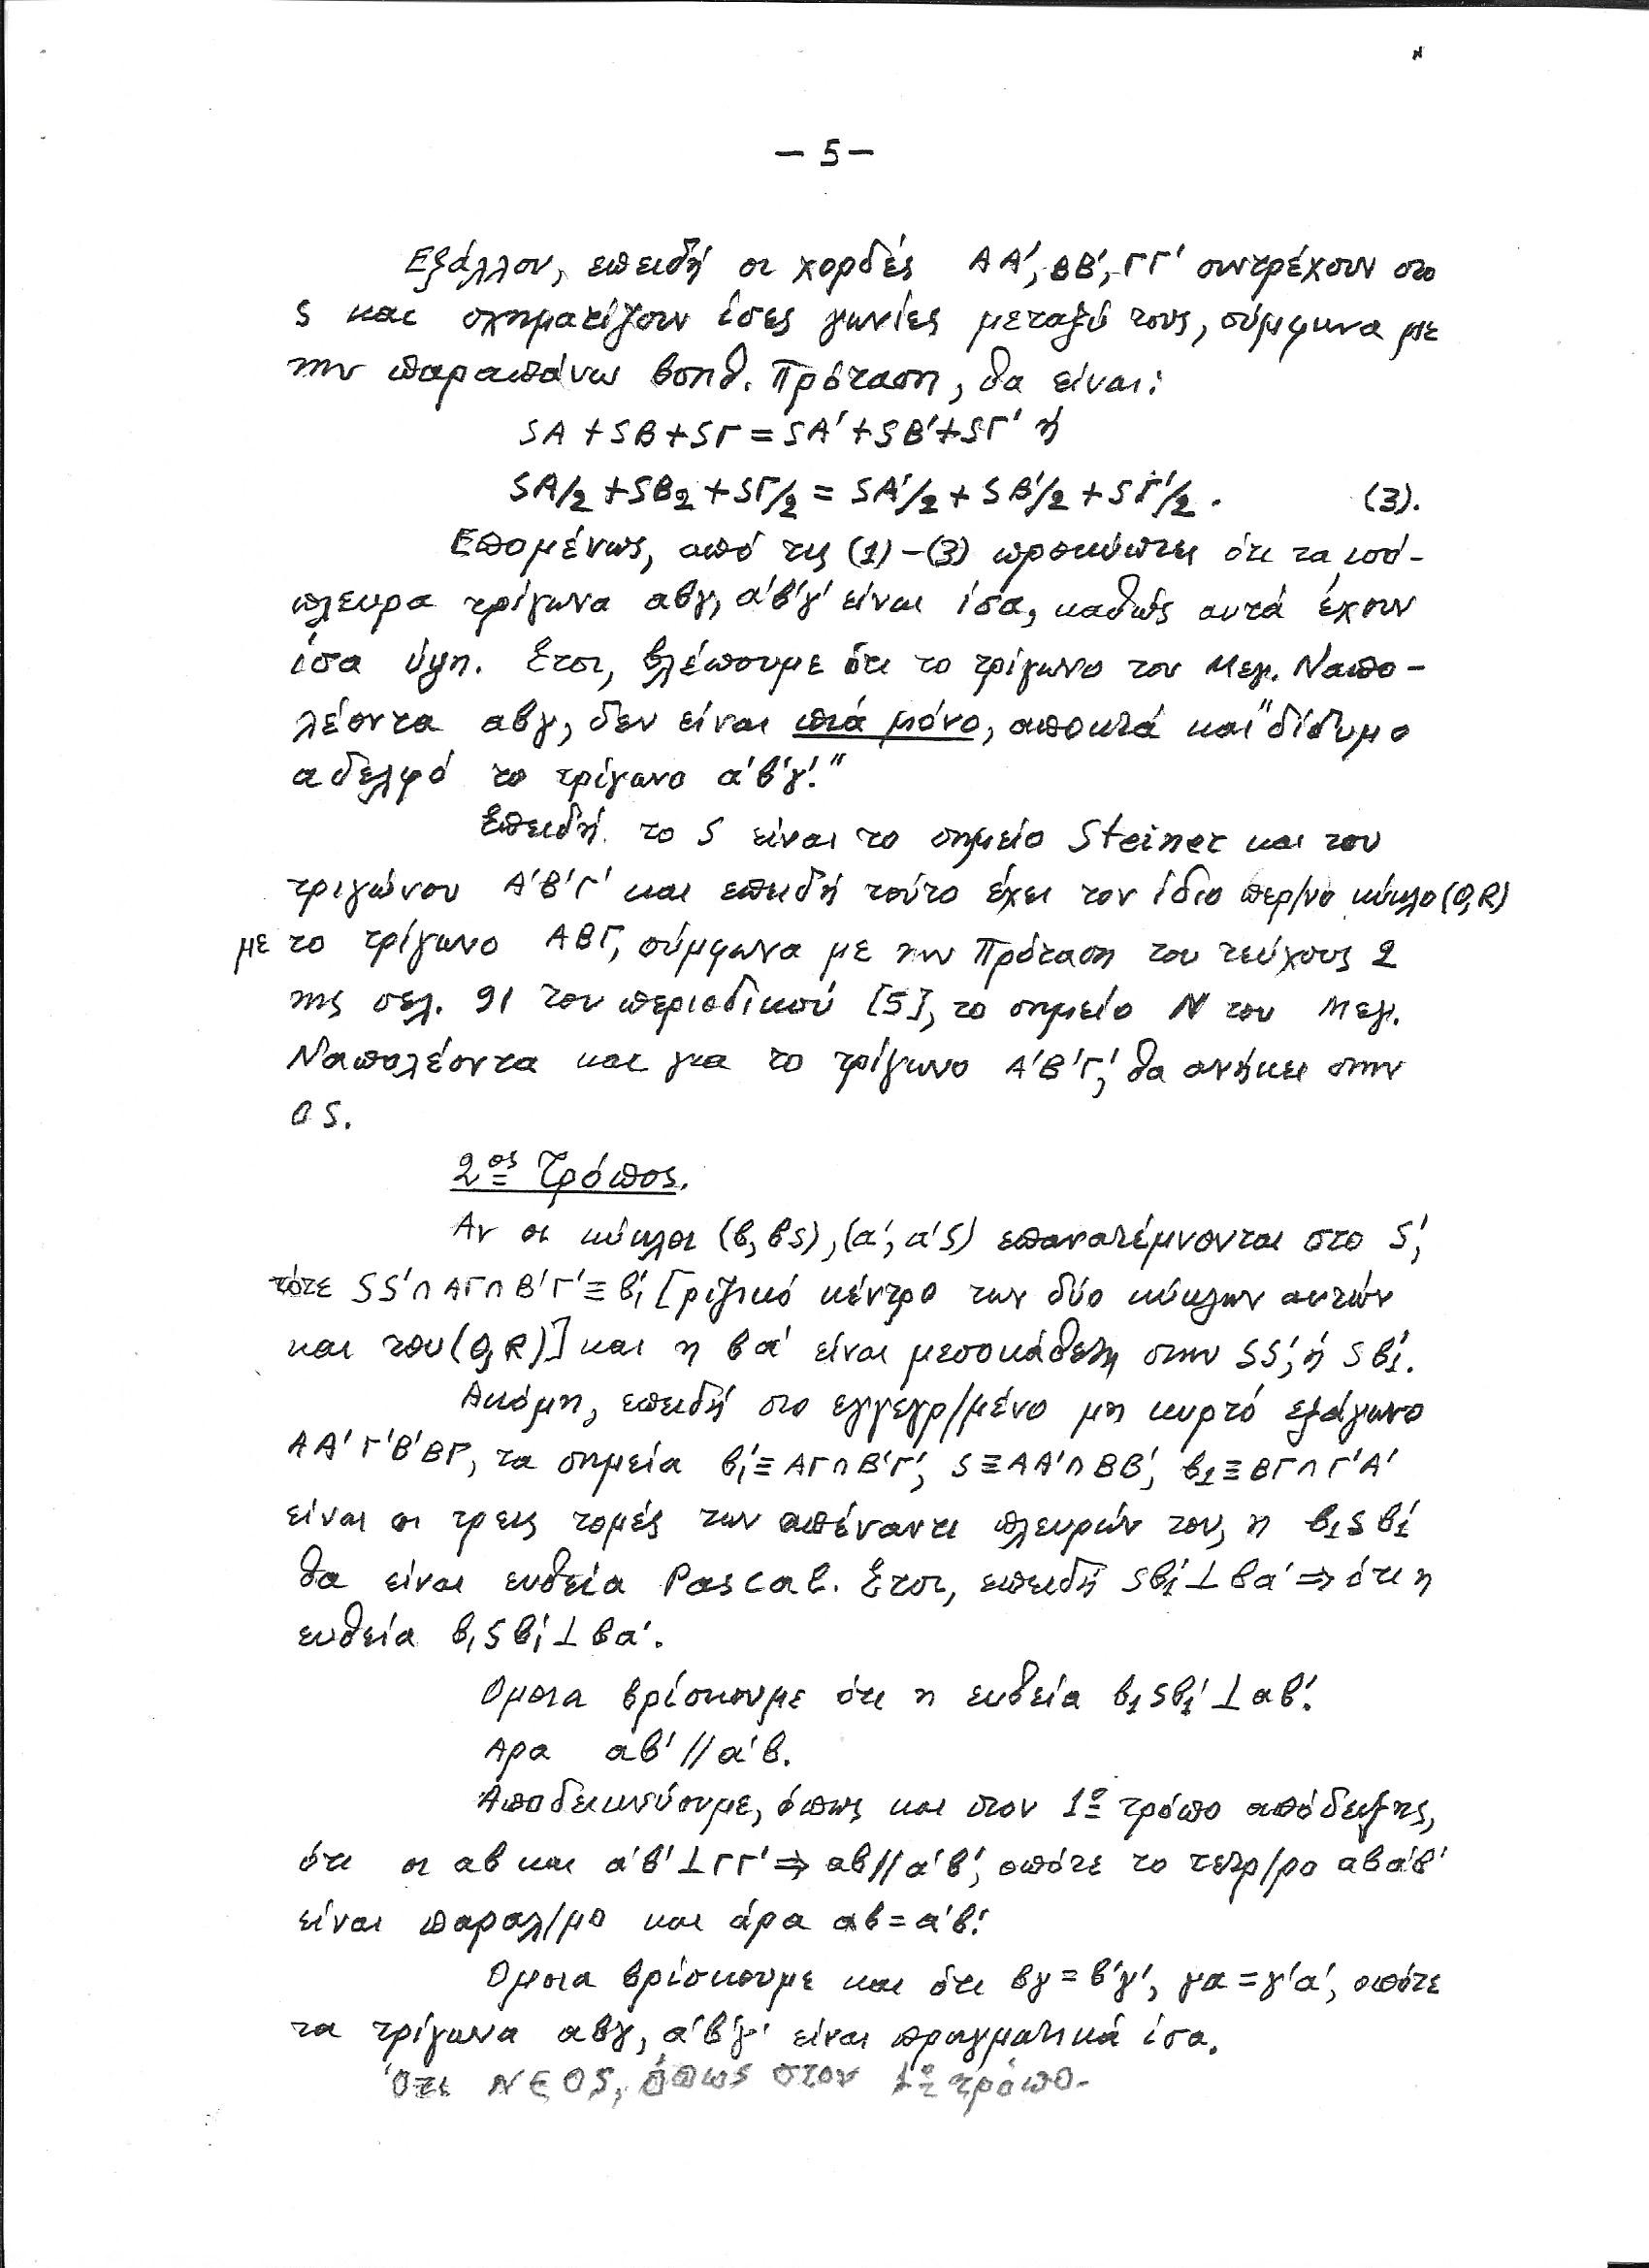 — 5 —
Εξάλλου, επειδή οι χορδές ΑΑ', ΒΒ', ΓΓ' συντρέχουν στο
S και σχηματίζουν ίσες γωνίες μεταξύ τους, σύμφωνα με
την παραπάνω βοηθ. Πρόταση, θα είναι:
SA + SB + SΓ = SA' + SB' + SΓ' ή
SA/2 + SB2 + SΓ/2 = SA'/2 + SB'/2 + SΓ'/2 . (3).
Επομένως, από τις (1) – (3) προκύπτει ότι τα ισό-
πλευρα τρίγωνα αβγ, α'β'γ' είναι ίσα, καθώς αυτά έχουν
ίσα ύψη. Έτσι, βλέπουμε ότι το τρίγωνο του Μεγ. Ναπο-
λέοντα αβγ, δεν είναι πιά μόνο, αποκτά και "δίδυμο
αδελφό το τρίγωνο α'β'γ'."
Επειδή το S είναι το σημείο Steiner και του
τριγώνου Α'Β'Γ' και επειδή τούτο έχει τον ίδιο περ/νο κύκλο (O,R)
με το τρίγωνο ΑΒΓ, σύμφωνα με την Πρόταση του τεύχους 2
της σελ. 91 του περιοδικού [5], το σημείο N του Μεγ.
Ναπολέοντα και για το τρίγωνο Α'Β'Γ', θα ανήκει στην
OS.
2ος Τρόπος.
Αν οι κύκλοι (β, βS), (α', α'S) επανατέμνονται στο S',
τότε SS' ∩ ΑΓ ∩ Β'Γ' ≡ β'₁ [ριζικό κέντρο των δύο κύκλων αυτών
και του (O, R)] και η βα' είναι μεσοκάθετη στην SS', ή Sβ'₁.
Ακόμη, επειδή στο εγγεγρ/μένο μη κυρτό εξάγωνο
ΑΑ'Γ'Β'ΒΓ, τα σημεία β'₁ ≡ ΑΓ ∩ Β'Γ', S ≡ ΑΑ' ∩ ΒΒ', β₁ ≡ ΒΓ ∩ Γ'Α'
είναι οι τρεις τομές των απέναντι πλευρών του, η β₁Sβ'₁
θα είναι ευθεία Pascal. Έτσι, επειδή Sβ'₁ ⊥ βα' ⇒ ότι η
ευθεία β₁Sβ'₁ ⊥ βα'.
Όμοια βρίσκουμε ότι η ευθεία β₁Sβ'₁ ⊥ αβ'.
Άρα αβ' // α'β.
Αποδεικνύουμε, όπως και στον 1ο τρόπο απόδειξης,
ότι οι αβ και α'β' ⊥ ΓΓ' ⇒ αβ // α'β', οπότε το τετρ/ρο αβα'β'
είναι παραλ/μο και άρα αβ = α'β'.
Όμοια βρίσκουμε και ότι βγ = β'γ', γα = γ'α', οπότε
τα τρίγωνα αβγ, α'β'γ' είναι πραγματικά ίσα.
Ότι N ∈ OS, όπως στον 1ο τρόπο.